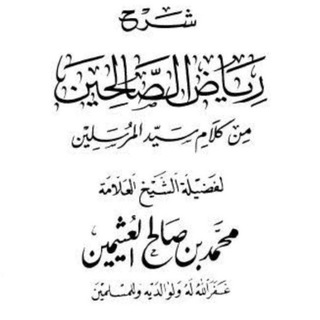 شرح
رياض الصالحين
من كلام سيد المرسلين
لفضيلة الشيخ العلامة
محمد بن صالح العثيمين
غفر الله له ولوالديه وللمسلمين